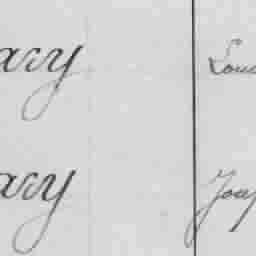 ary Lou
ary Jos